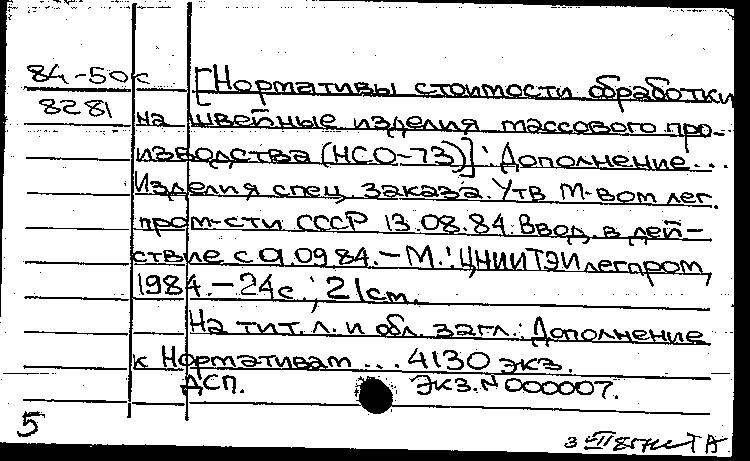 84-50к [Нормативы стоимости обработки
8281 на швейные изделия массового про-
изводства (НСО-73)]: Дополнение...
Изделия спец. заказа. Утв М-вом лег.
пром-сти СССР 13.08.84. Ввод. в дей-
ствие с 01.09.84. - М.: ЦНИИТЭИлегпром,
1984. - 24с.; 21см.
На тит. л. и обл. загл.: Дополнение
к Нормативам ... 4130 экз.
ДСП. Экз. N 000007.
5